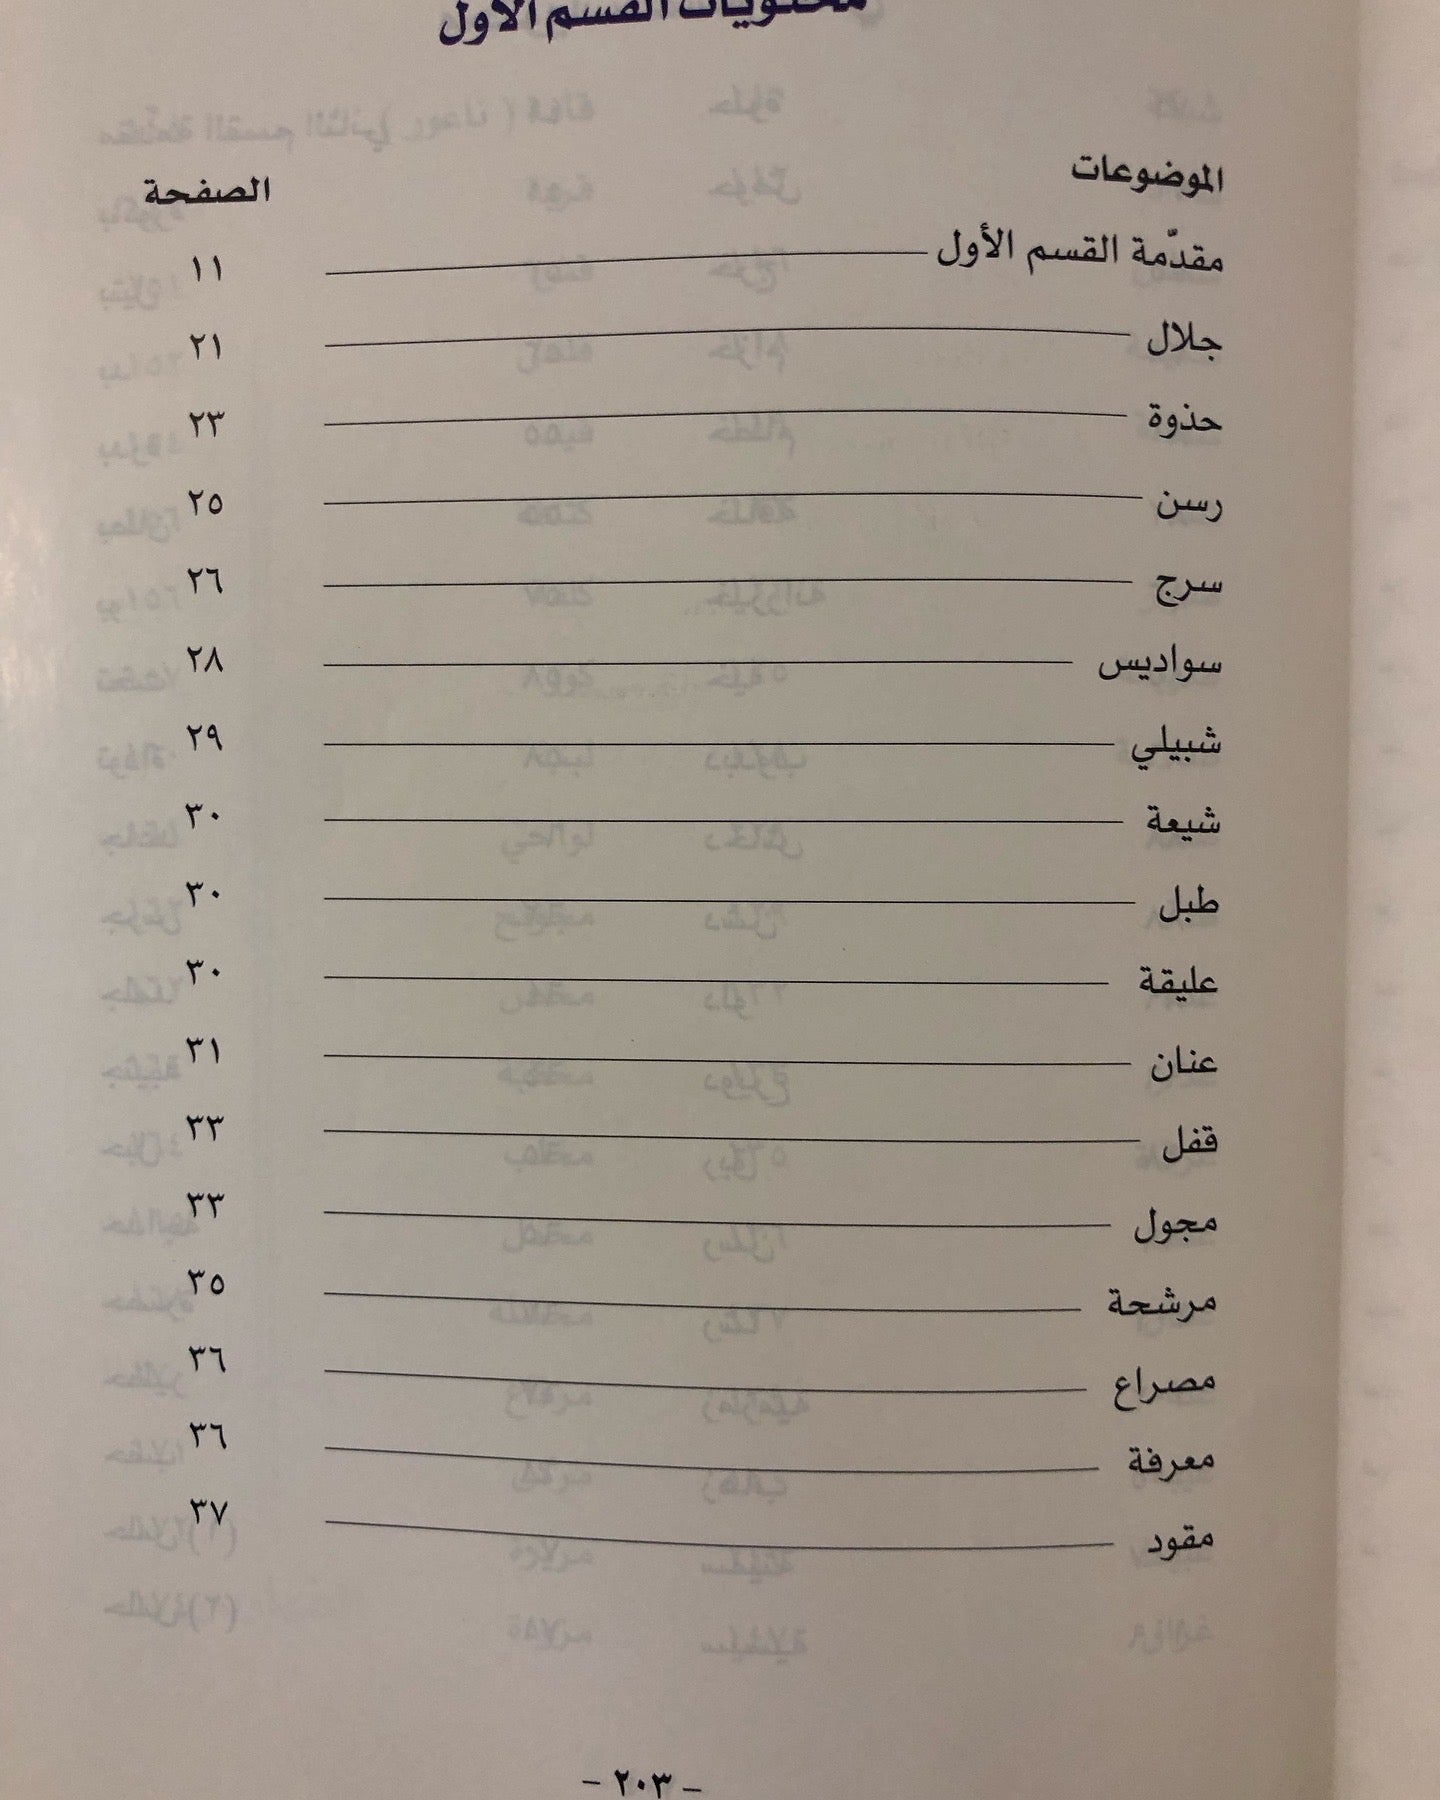 محتويات القسم الأول
الموضوعات الصفحة
مقدّمة القسم الأول ١١
جلال ٢١
حذوة ٢٣
رسن ٢٥
سرج ٢٦
سواديس ٢٨
شبيلي ٢٩
شيعة ٣٠
طبل ٣٠
عليقة ٣٠
عنان ٣١
قفل ٣٣
مجول ٣٣
مرشحة ٣٥
مصراع ٣٦
معرفة ٣٦
مقود ٣٧
- ٢٠٣ -